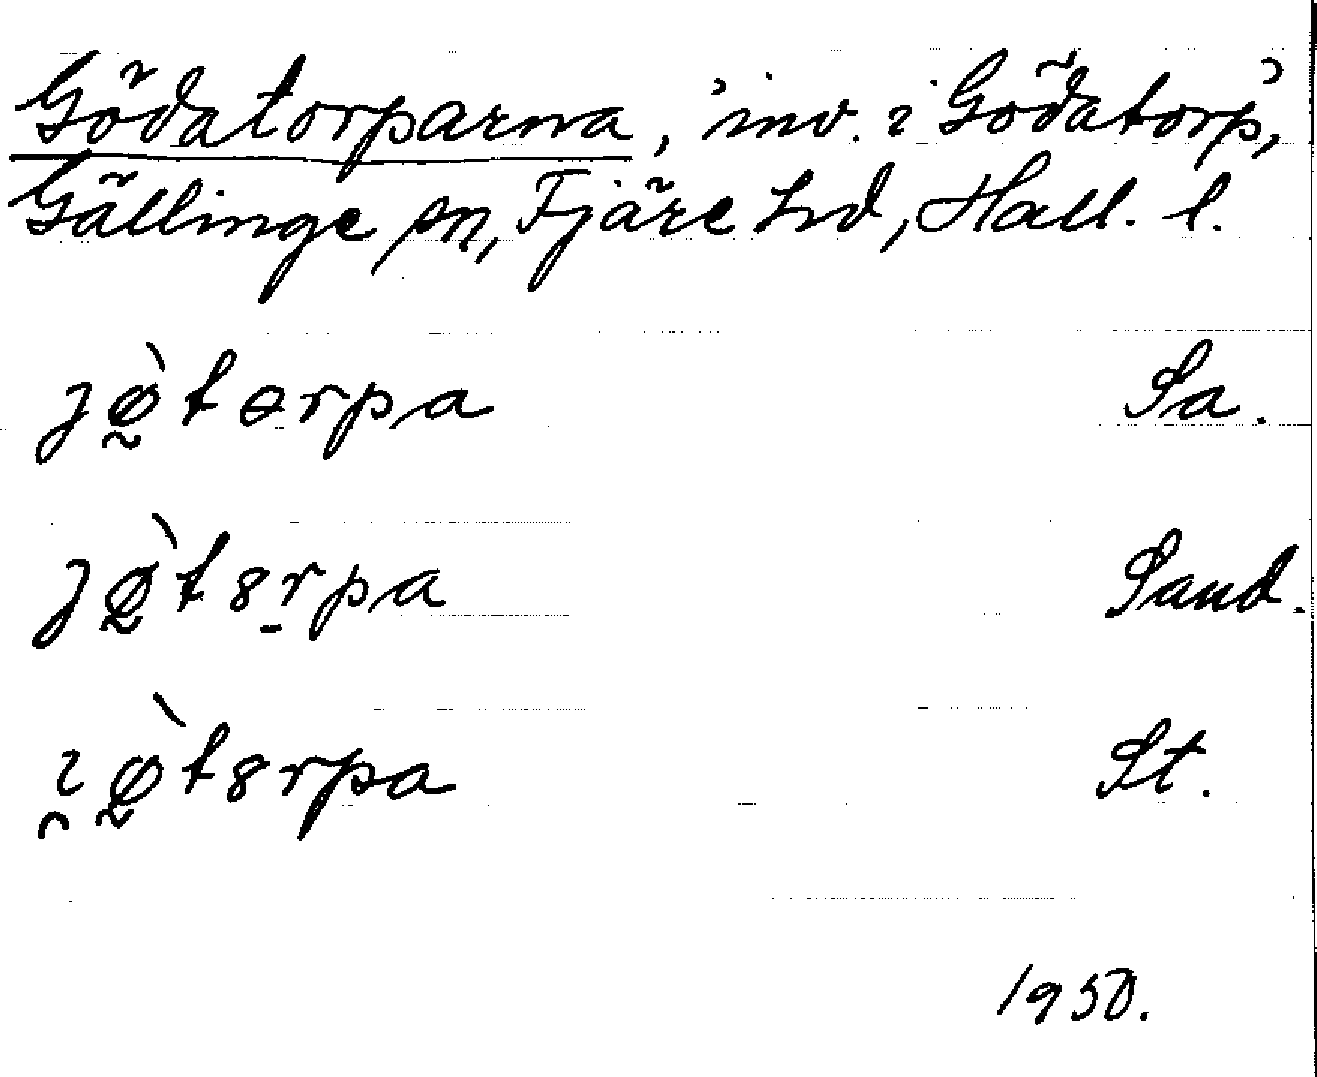 Gödatorparna, 'inv. i Gödatorp',
Gällinge sn, Fjäre hd, Hall. l.
jø̰̀tɵrpa Sa.
jø̰̀t8r̠pa Sand.
ı̯ø̰̀t8rpa St.
1950.